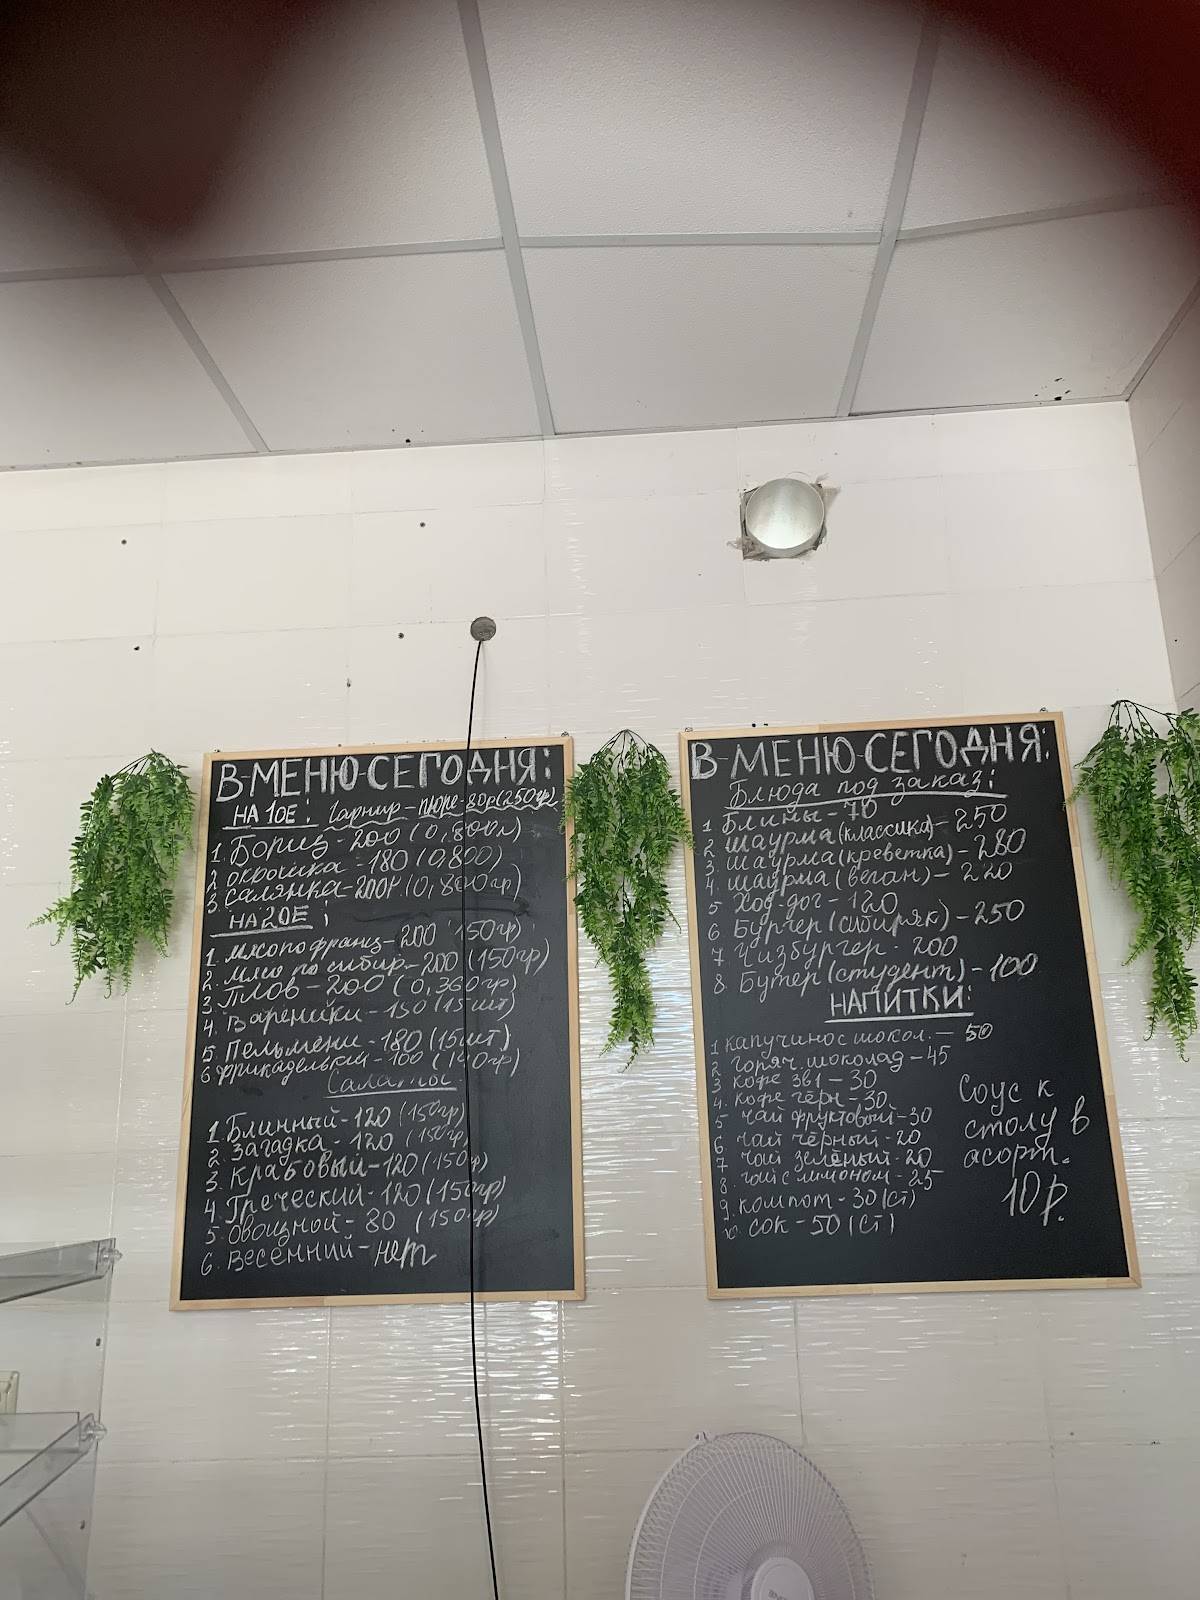 В-МЕНЮ-СЕГОДНЯ:
НА 1ОЕ: Гарнир - пюре - 80р (250гр)
1. Борщ - 200 (0,800л)
2. окрошка - 180 (0,800)
3. Салянка - 200р (0,800гр)
НА 2ОЕ:
1. мясо по франц - 200 150гр)
2. мясо по сибир - 200 (150гр)
3. Плов - 200 (0,360гр)
4. Вареники - 150 (15шт)
5. Пельмени - 180 (15шт)
6. фрикадельки - 100 (140гр)
Салаты
1. Блинный - 120 (150гр)
2. Загадка - 120 (150гр)
3. Крабовый - 120 (150гр)
4. Греческий - 120 (150гр)
5. Овощной - 80 (150гр)
6. Весенний - нет
В-МЕНЮ-СЕГОДНЯ:
Блюда под заказ:
1 Блины - 70
2 Шаурма (классика) - 250
3 Шаурма (креветка) - 280
4. Шаурма (веган) - 220
5 Ход-дог - 120
6 Бургер (сибиряк) - 250
7 Чизбургер - 200
8. Бутер (студент) - 100
НАПИТКИ:
1 капучино с шокол. - 50
2 Горяч. шоколад - 45
3 кофе 3в1 - 30
4. кофе чёрн - 30
5 чай фруктовый - 30
6 чай чёрный - 20
7 чай зелёный - 20
8. чай с лимоном - 25
9. компот - 30 (ст)
10. сок - 50 (ст)
Соус к
столу в
асорт.
10р.